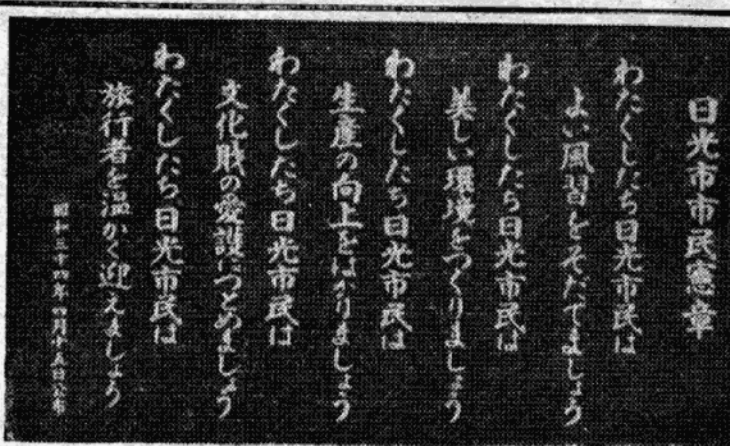 日光市市民憲章
わたくしたち日光市民は
よい風習をそだてましょう
わたくしたち日光市民は
美しい環境をつくりましょう
わたくしたち日光市民は
生産の向上をはかりましょう
わたくしたち日光市民は
文化財の愛護につとめましょう
わたくしたち日光市民は
旅行者を温かく迎えましょう
昭和三十四年四月十五日公布